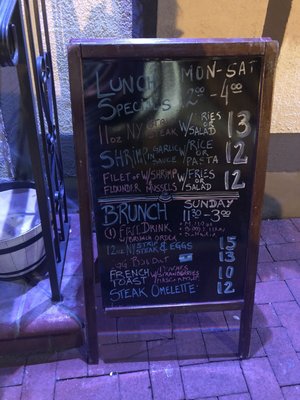 LUNCH MON-SAT
SPECIALS 12:00 - 4:00
11oz NY STR STEAK W/FRIES or SALAD 13
SHRIMP IN GARLIC SAUCE W/RICE or PASTA 12
FILET of FLOUNDER W/SHRIMP MUSSELS W/FRIES or SALAD 12
BRUNCH SUNDAY
11:30 - 3:00
(1) FREE DRINK
12oz N.Y. STEAK & EGGS 15
13
FRENCH TOAST W/STRAWBERRIES 10
STEAK OMELETTE 12